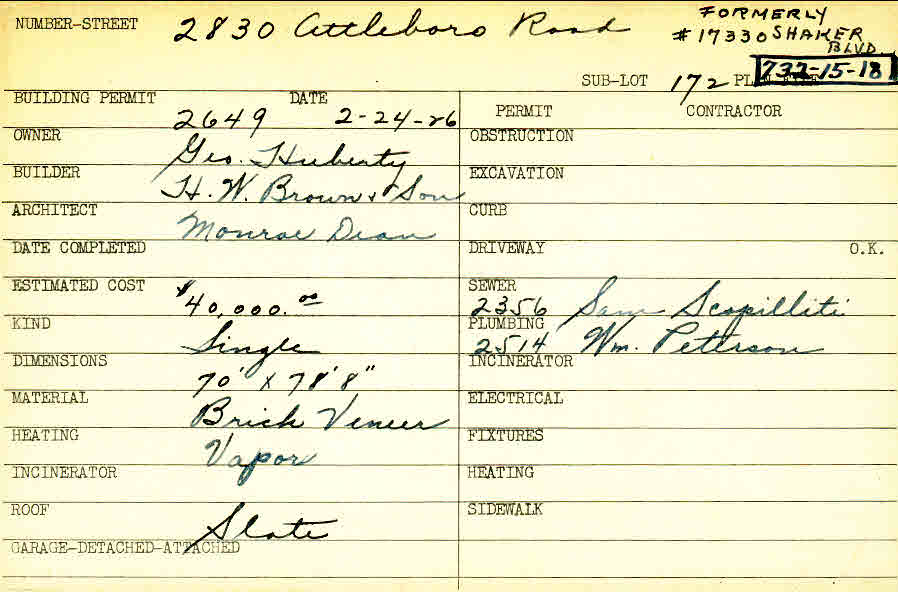 NUMBER-STREET 2830 Attleboro Road FORMERLY
#17330 SHAKER
BLVD.
SUB-LOT 172 732-15-18
BUILDING PERMIT DATE PERMIT CONTRACTOR
2649 2-24-26
OWNER Geo. Huberty OBSTRUCTION
BUILDER H. W. Brown & Son EXCAVATION
ARCHITECT Monroe Dean CURB
DATE COMPLETED DRIVEWAY O.K.
ESTIMATED COST $40,000.00 SEWER
2356 Sam Scopilliti
KIND Single PLUMBING
2514 Wm. Petterson
DIMENSIONS 70' x 78' 8" INCINERATOR
MATERIAL Brick Veneer ELECTRICAL
HEATING Vapor FIXTURES
INCINERATOR HEATING
ROOF Slate SIDEWALK
GARAGE-DETACHED-ATTACHED